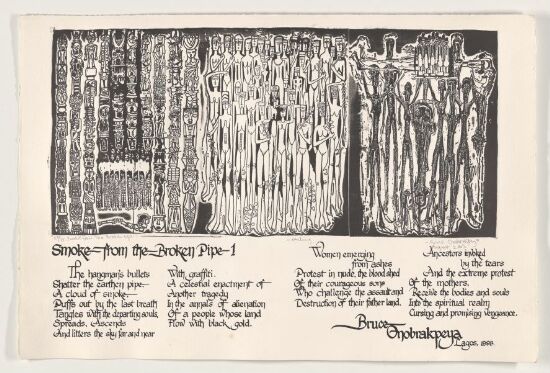 Smoke from the Broken Pipe-1
The hangman's bullets
Shatter the earthen pipe
A cloud of smoke
Puffs out by the last breath
Tangles with the departing souls,
Spreads, Ascends
And litters the sky far and near
With graffiti.
A celestial enactment of
Another tragedy
In the annals of alienation
Of a people whose land
Flow with black gold.
Women emerging
from ashes
Protest in nude, the blood shed
Of their courageous sons
Who challenge the assault and
Destruction of their father land.
Ancestors invoked
by the tears
And the extreme protest
Of the mothers,
Receive the bodies and souls
Into the spiritual realm
Cursing and promising vengeance.
Bruce
Onobrakpeya
Lagos,